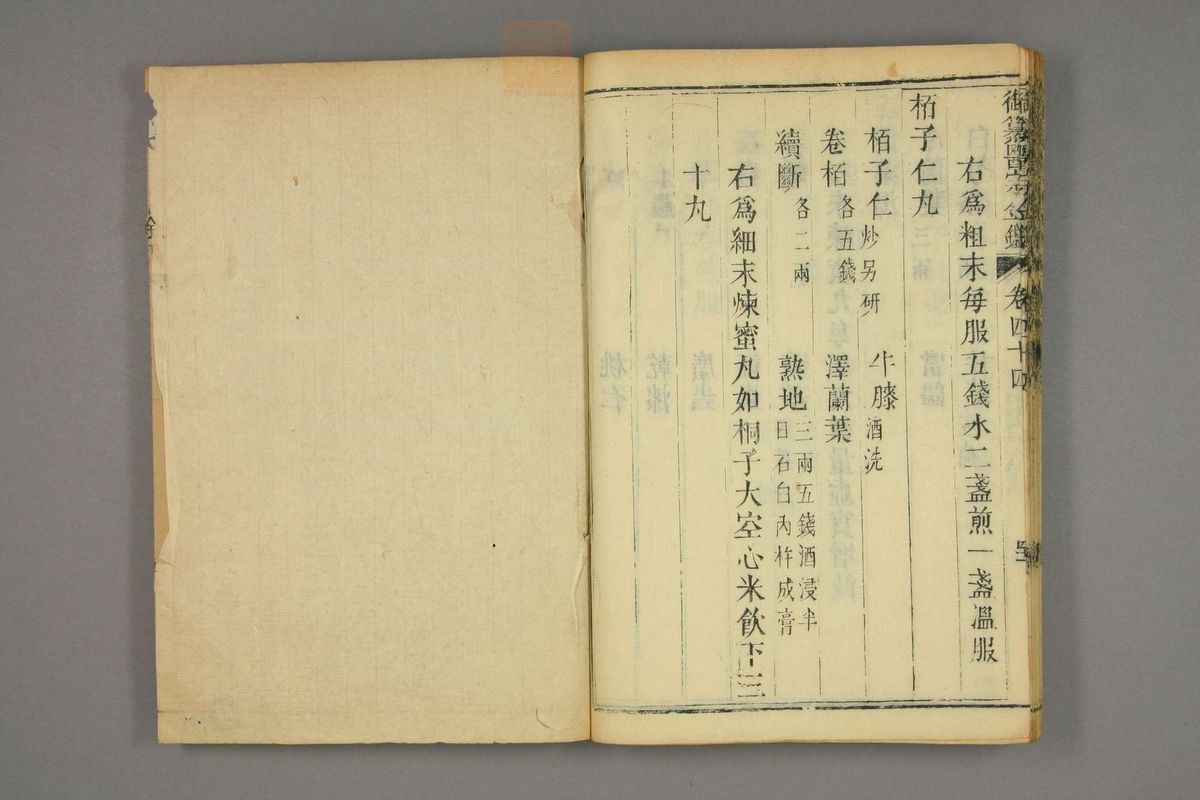 御纂醫宗金鑑 卷四十四
右爲粗末每服五錢水二盞煎一盞溫服
栢子仁丸
栢子仁炒另研 牛膝酒洗
卷栢各五錢 澤蘭葉
續斷各二兩 熟地三兩五錢酒浸半日石臼內杵成膏
右爲細末煉蜜丸如桐子大空心米飲下三
十丸